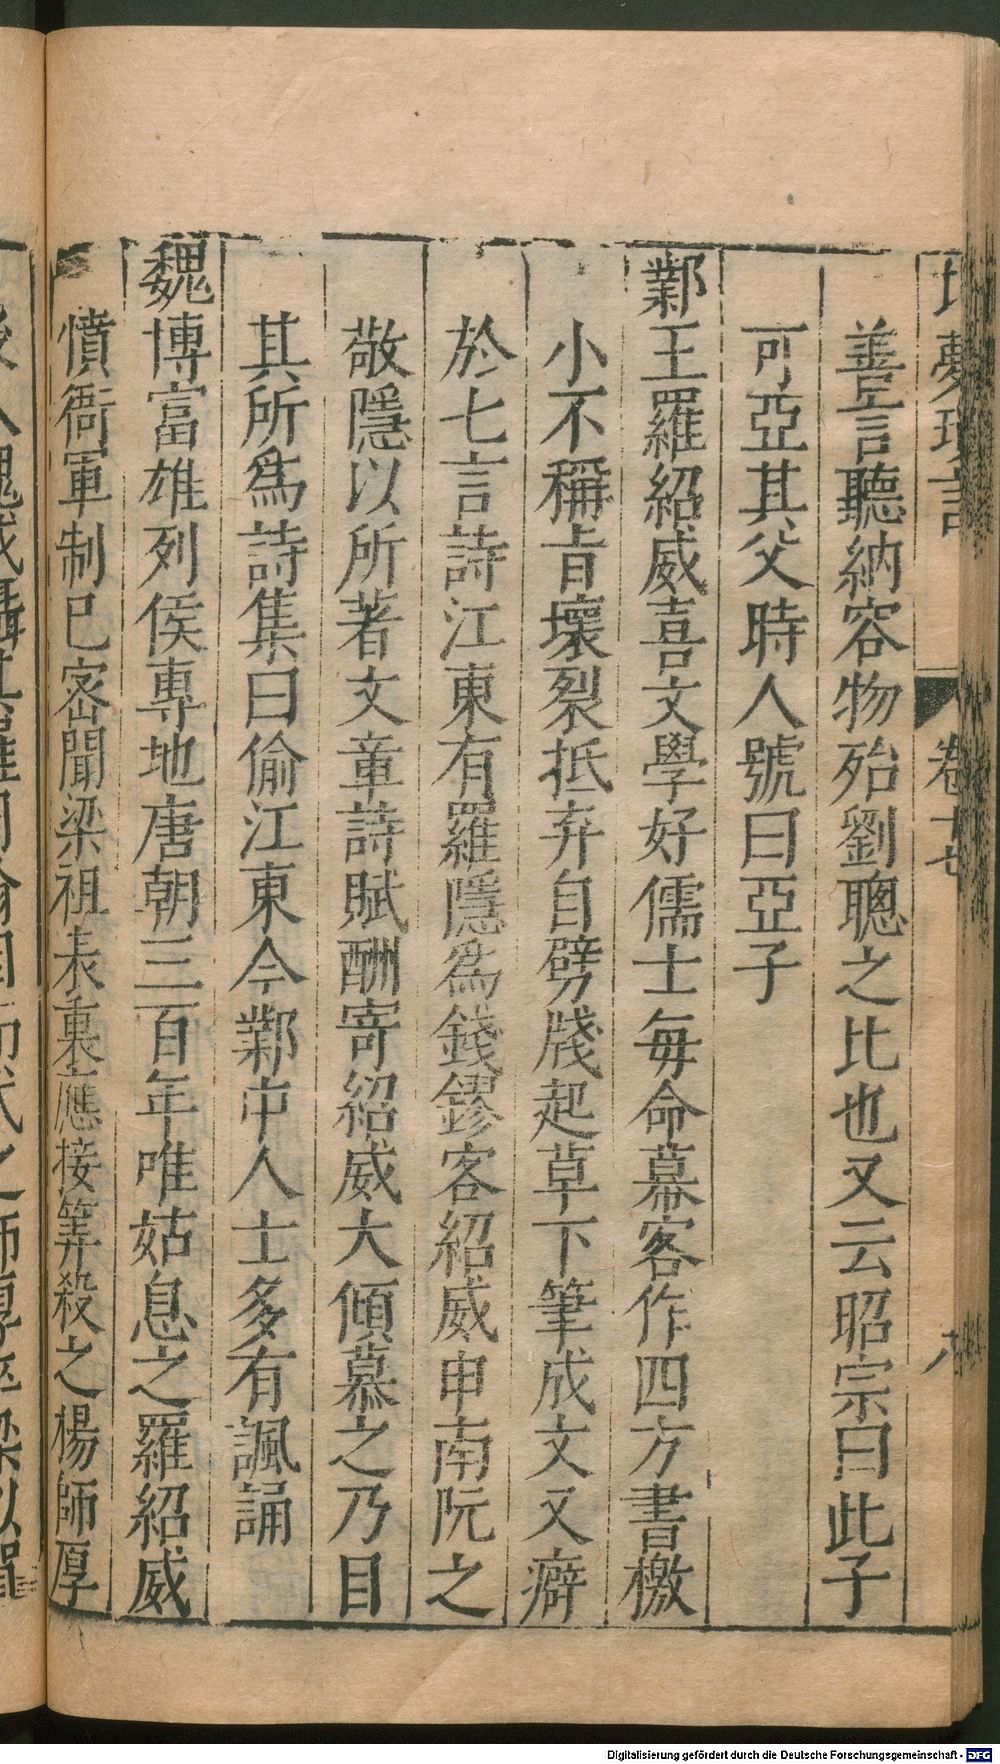 北夢瑣言 卷十七 八
善言聽納容物殆劉聰之比也又云昭宗曰此子
可亞其父時人號曰亞子
鄴王羅紹威喜文學好儒士每命幕客作四方書檄
小不稱旨壞裂抵弃自劈牋起草下筆成文又癖
於七言詩江東有羅隱爲錢鏐客紹威申南阮之
敬隱以所著文章詩賦酬寄紹威大傾慕之乃目
其所爲詩集曰偷江東今鄴中人士多有諷誦
魏博富雄列侯專地唐朝三百年唯姑息之羅紹威
憤衙軍制已密聞梁祖表裏應接筭殺之楊師厚
Digitalisierung gefördert durch die Deutsche Forschungsgemeinschaft - DFG